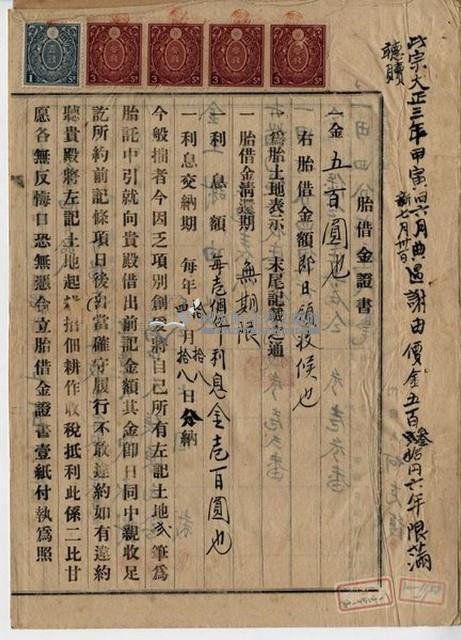 此宗大正三年甲寅四月典過謝由價金五百叁拾円六年限滿
聽贖
新七月廿日
胎借金證書
一金 五百圓也
右胎借金額即日領收候也
一爲胎土地表示 末尾記載之通
一胎借金清還期 無期限
一利息額 每壱個年利息金壱百圓也
一利息交納期 每年 月拾八日分納
今般拙者今因乏項別創爰將自己所有左記土地弍筆爲
胎託中引就向貴殿借出前記金額其金即日同中親收足
訖所約前記條項日後各當確守履行不敢違約如有違約
聽貴殿將左記土地起耕招佃耕作收稅抵利此係二比甘
愿各無反悔口恐無憑今立胎借金證書壹紙付執爲照